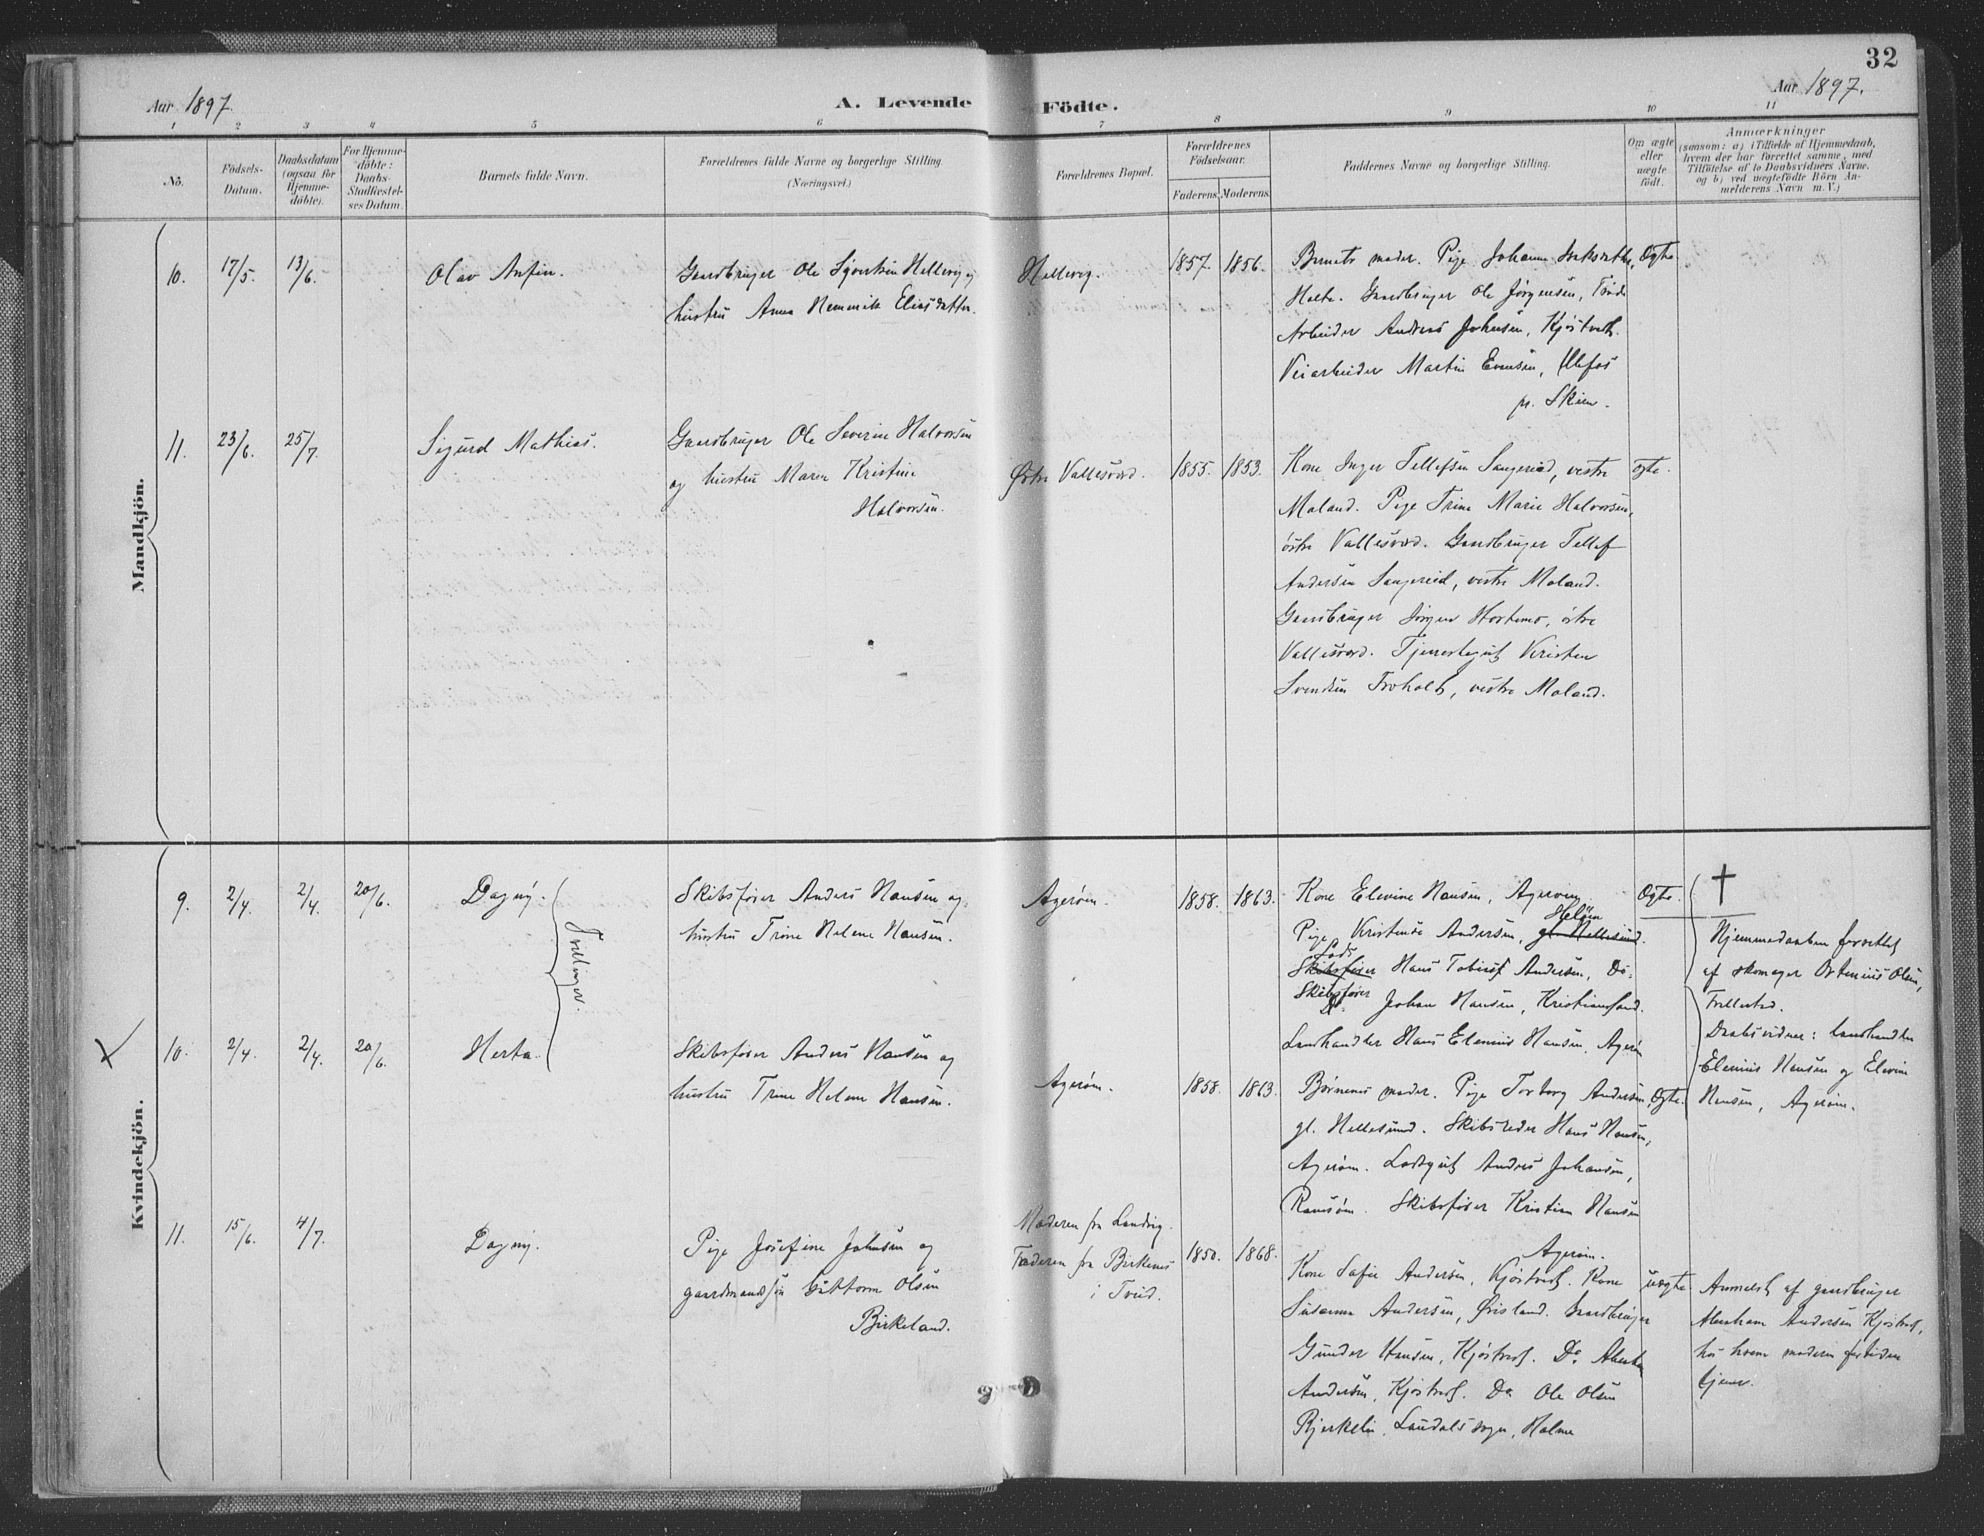 32
Aar 1897.
A. Levende Födte.
Aar 1897.
1 2 3 4 5 6 7 8 9 10 11
No.
Födsels-
Datum.
Daabsdatum
(ogsaa for
Hjemme-
döbte).
For Hjemme-
döbte:
Daabs-
Stadfæstel-
ses Datum.
Barnets fulde Navn.
Forældrenes fulde Navne og borgerlige Stilling.
(Næringsvei.)
Forældrenes Bopæl.
Forældrenes
Födselsaar.
Faderens. Moderens.
Faddernes Navne og borgerlige Stilling.
Om ægte
eller
uægte
födt.
Anmærkninger
(saasom: a) i Tilfælde af Hjemmedaab,
hvem der har forrettet samme, med
Tilföielse af to Daabsvidners Navne.
og b) ved uægtefödte Börn An-
melderens Navn m. V.)
Mandkjön.
10. 17/5. 13/6. Olav Anfin.
Gaardbruger Ole Hellevig og
hustru Anna Eliasdatter.
Hellevig. 1857. 1856.
moder. Pige Johanne
Holte. Gaardbruger Ole Jørgensen,
Arbeider Andreas Johnsen, Kjøstvedt.
Veiarbeider Martin Evensen, Ulefos
pr. Skien.
Ægte
11. 23/6. 25/7. Sigurd Mathias.
Gaardbruger Ole Severin Halvorsen
og hustru Maren Kristine
Halvorsen.
Østre Vallesværd. 1855. 1853.
Kone Inger Tellefsen Sangereid, vestre
Moland. Pige Trine Marie Halvorsen,
østre Vallesværd. Gaardbruger Tellef
Andersen Sangereid, vestre Moland.
Gaardbruger Jørgen Hortemo, østre
Vallesværd. Tjenestegut Kristen
Svendsen Troholt, vestre Moland.
Ægte.
Kvindekjön.
9. 2/4. 2/4. 20/6. Dagny.
Tvillinger.
Skibsfører Anders Hansen og
hustru Trine Helene Hansen.
Agerøen. 1858. 1863.
Kone Elevine Hansen, Agerøen
Heløen
Pige Kristense Andersen, gl. Hellesund.
Lods
Skibsfører Hans Tobias Andersen, Do.
Skibsfører Johan Hansen, Kristianssand.
Landhandler Hans Elenius Hansen, Agerøen
Ægte.
†
Hjemmedaaben forrettet
af skomager Ostenius Olsen,
Daabsvidner: Landhandler
Elenius Hansen og Elevine
Hansen, Agerøen.
10. 2/4. 2/4. 20/6. Herta.
Skibsfører Anders Hansen og
hustru Trine Helene Hansen.
Agerøen. 1858. 1863.
Børnenes moder. Pige Torborg Andersen,
gl. Hellesund. Skibsreder Hans Hansen,
Agerøen. Lodsgut Anders Johansen,
Ramsøen. Skibsfører Kristian Hansen
Agerøen.
Ægte.
11. 15/6. 4/7. Dagny.
Pige Josefine Johnsen og
gaardmandssøn Guttorm Olsen
Birkeland.
Moderen fra Landvig.
Faderen fra Birkenes
i Tveid.
1850. 1868.
Kone Sofie Andersen, Kjøstvedt. Kone
Susanna Andersen, Øvisland. Gaardbruger
Gunder Hansen, Kjøstvedt. Do Abraham
Andersen, Kjøstvedt. Do Ole Olsen
Bjerkelie, Laudals sogn, Holme
uægte.
Anmeldt af gaardbruger
Abraham Andersen Kjøstvedt,
hos hvem moderen for tiden
tjener.